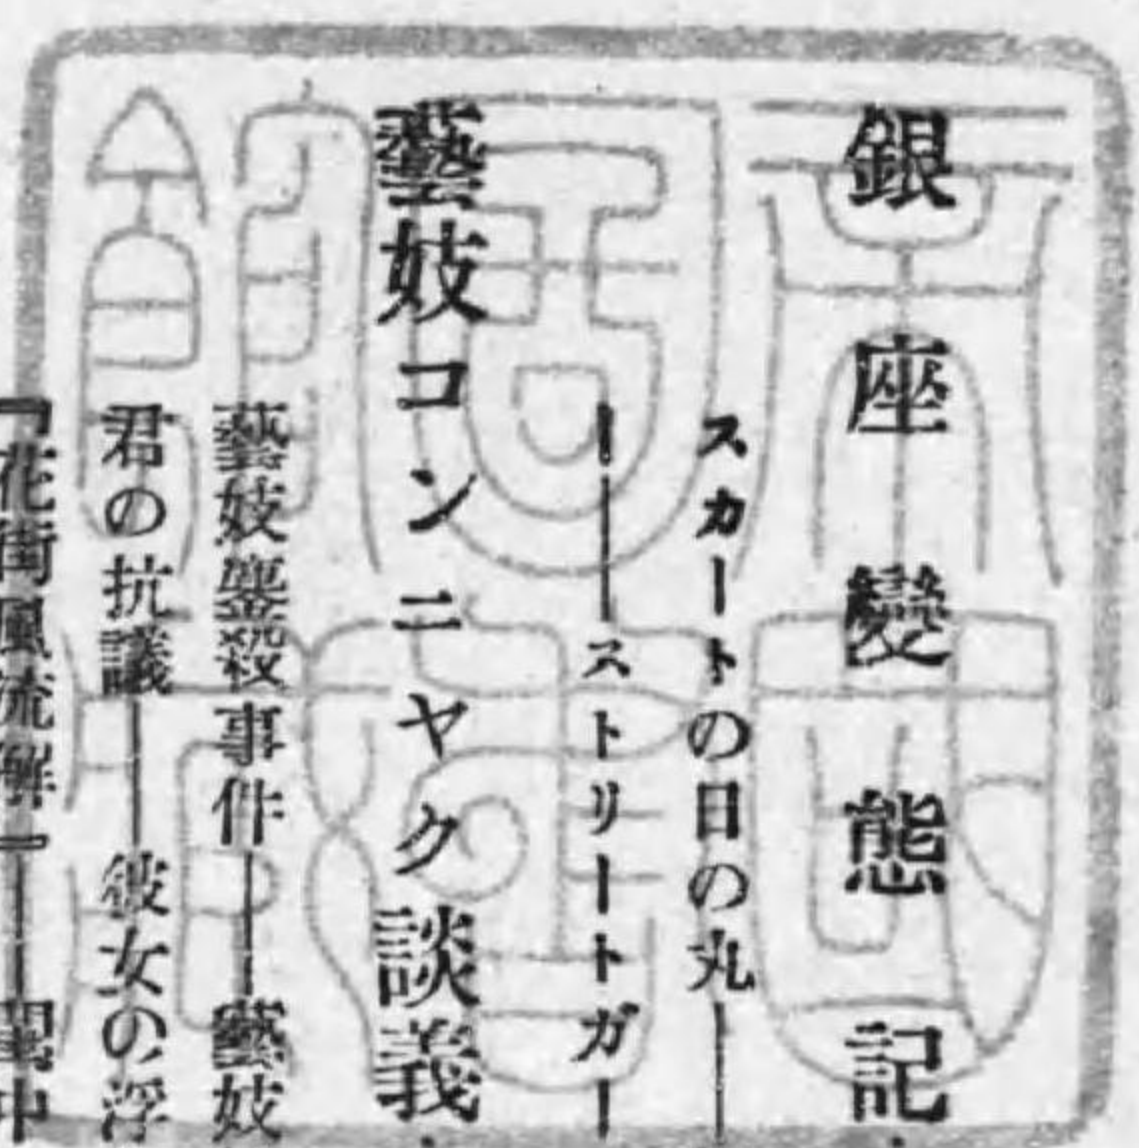 銀座變態記
スカートの日の丸――
――ストリートガー
藝妓コンニヤク談義
藝妓鏖殺事件――藝妓
君の抗議――彼女の浮
『花街風流解』――閨中